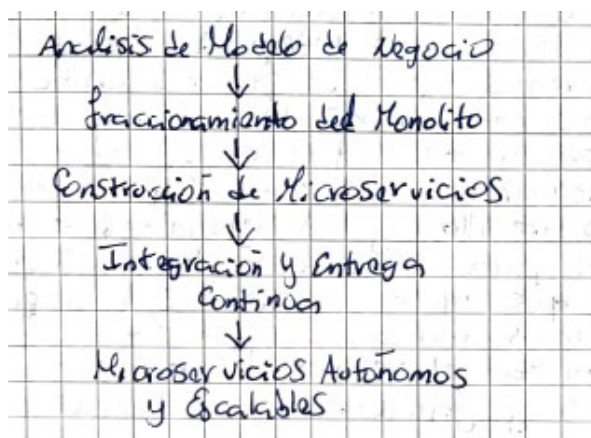 Analisis de Modelo de Negocio
fraccionamiento del Monolito
Construcción de Microservicios
Integración y Entrega
Continua
Microservicios Autónomos
y Escalables